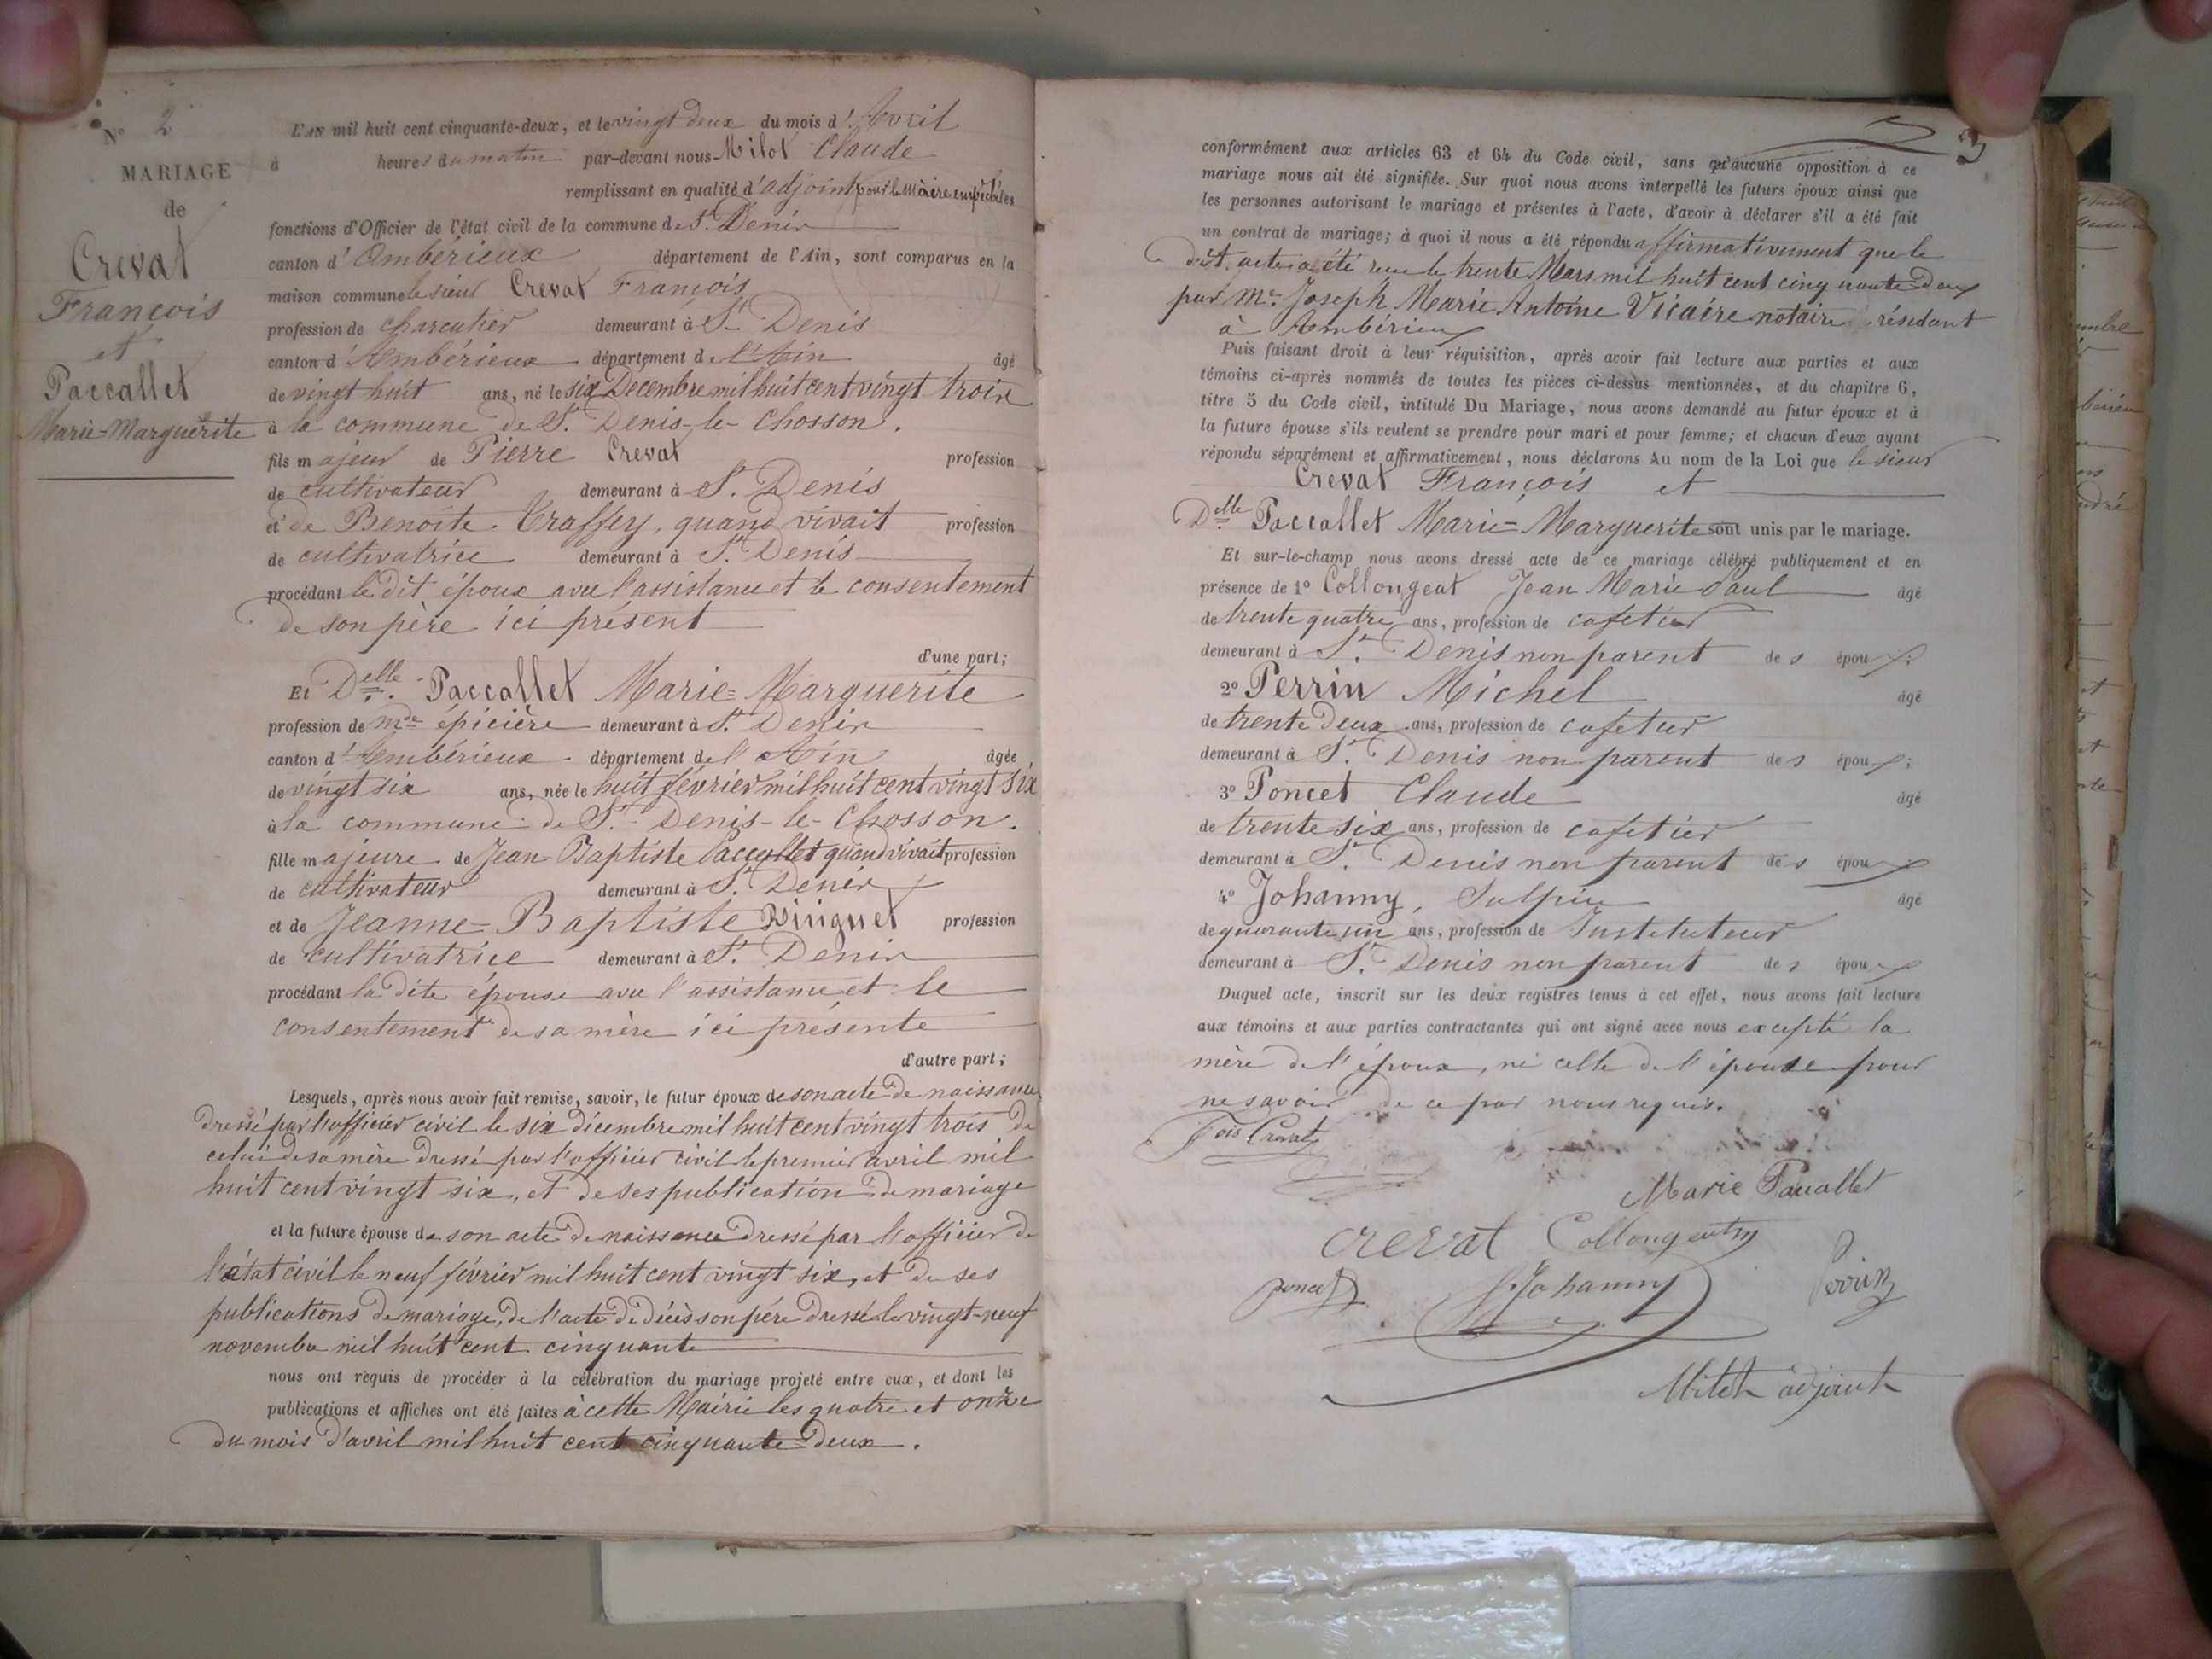 N° 2
MARIAGE
de
Crevat
François
et
Paccallet
Marie-Marguerite
L'AN mil huit cent cinquante-deux, et le vingt deux du mois d'Avril
à heures du matin par-devant nous Milot Claude
remplissant en qualité d'adjoint pour le Maire empêché les
fonctions d'Officier de l'état civil de la commune de St. Denis
canton d'Ambérieux département de l'Ain, sont comparus en la
maison commune le sieur Crevat François
profession de charcutier demeurant à St Denis
canton d'Ambérieux département de l'Ain âgé
de vingt huit ans, né le six Décembre mil huit cent vingt trois
à la commune de St. Denis-le-Chosson.
fils majeur de Pierre Crevat profession
de cultivateur demeurant à St. Denis
et de Benoite Traffey, quand vivait profession
de cultivatrice demeurant à St. Denis
procédant le dit époux avec l'assistance et le consentement
de son père ici présent
d'une part;
Et Delle. Paccallet Marie=Marguerite
profession de mde épicière demeurant à St. Denis
canton d'Ambérieux département de l'Ain âgée
de vingt six ans, née le huit février mil huit cent vingt six
à la commune de St. Denis-le-Chosson.
fille majeure de Jean Baptiste Paccallet quand vivait profession
de cultivateur demeurant à St. Denis
et de Jeanne=Baptiste Ringuet profession
de cultivatrice demeurant à St. Denis
procédant la dite épouse avec l'assistance et le
consentement de sa mère ici présente
d'autre part;
Lesquels, après nous avoir fait remise, savoir, le futur époux de son acte de naissance
dressé par l'officier civil le six décembre mil huit cent vingt trois de
celui de sa mère dressé par l'officier civil le premier avril mil
huit cent vingt six, et de ses publication de mariage
et la future épouse de son acte de naissance dressé par l'officier de
l'état civil le neuf février mil huit cent vingt six, et de ses
publications de mariage, de l'acte de décès son père dressé le vingt-neuf
novembre mil huit cent cinquante
nous ont requis de procéder à la célébration du mariage projeté entre eux, et dont les
publications et affiches ont été faites à cette Mairie les quatre et onze
du mois d'avril mil huit cent cinquante deux.
3
conformément aux articles 63 et 64 du Code civil, sans qu'aucune opposition à ce
mariage nous ait été signifiée. Sur quoi nous avons interpellé les futurs époux ainsi que
les personnes autorisant le mariage et présentes à l'acte, d'avoir à déclarer s'il a été fait
un contrat de mariage; à quoi il nous a été répondu affirmativement que le
dit acte a été reçu le trente Mars mil huit cent cinquante deux
par Me. Joseph Marie Antoine Vicaire notaire résidant
à Ambérieux
Puis faisant droit à leur réquisition, après avoir fait lecture aux parties et aux
témoins ci-après nommés de toutes les pièces ci-dessus mentionnées, et du chapitre 6,
titre 5 du Code civil, intitulé Du Mariage, nous avons demandé au futur époux et à
la future épouse s'ils veulent se prendre pour mari et pour femme; et chacun d'eux ayant
répondu séparément et affirmativement, nous déclarons Au nom de la Loi que le sieur
Crevat François et
Delle Paccallet Marie=Marguerite sont unis par le mariage.
Et sur-le-champ nous avons dressé acte de ce mariage célébré publiquement et en
présence de 1° Collongeat Jean Marie Paul âgé
de trente quatre ans, profession de cafetier
demeurant à St. Denis non parent des époux.
2° Perrin Michel âgé
de trente deux ans, profession de cafetier
demeurant à St. Denis non parent des époux;
3° Poncet Claude âgé
de trente six ans, profession de cafetier
demeurant à St. Denis non parent des époux
4° Johanny, Sulpice âgé
de quarante un ans, profession de Instituteur
demeurant à St. Denis non parent des époux
Duquel acte, inscrit sur les deux registres tenus à cet effet, nous avons fait lecture
aux témoins et aux parties contractantes qui ont signé avec nous excepté la
mère de l'époux, ni celle de l'épouse pour
ne savoir de ce par nous requis.
Fois Crevat
Marie Paccallet
crevat Collongeat
poncet Johanny Perrin
Milot adjoint